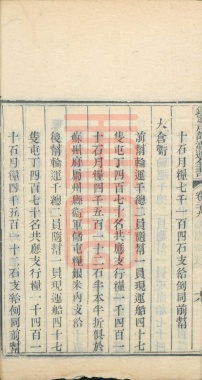 十石月糧七千一百四石支給倒同前幫
太倉衛
前幫輸運千總二員隨幫一員現運船四十七
隻屯丁四百七十名共應支行糧一千四百一
十石月糧四千五百一十二石本半折俱於
蘇州府屬州縣衛軍儲屯糧銀米內支給
後幫輸運千總二員隨幫一員現運船四十七
隻屯丁四百七十名共應支行糧一千四百一
十石月糧四千五百一十二石支給倒同前幫